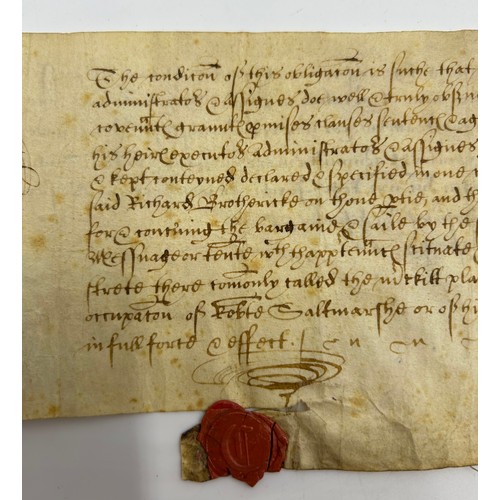 The condicon of this obligacon is suche that
administratos & assignes doe well & truly obser
covennts graunts pmises clauses sentencs & ag
his heires executos administratos & assignes
& kept conteyned declared & specified in one
said Richard Brothericke on thone ptie, and th
for & concning the bargaine & saile by the
Messuage or tente wth thapptenncs scituate
strete there comonly called the pla
occupacon of Robte Saltmarshe or of hi
in full force & effect.